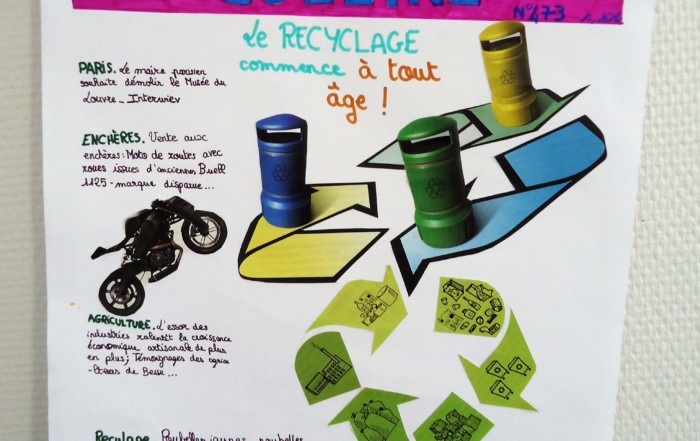 N°47-3
Le RECYCLAGE
commence à tout
âge !
PARIS. Le maire parisien
souhaite démolir le Musée du
Louvre_ Interview
ENCHÈRES. Vente aux
enchères: Moto de routes avec
roues issues d'anciennes Buell
1125 - marque disparue...
AGRICULTURE. L'essor des
industries ralentit la croissance
économique artisanale de plus
en plus; Témoignages des agricu
-lteurs de Besse...
Reculage. Poubelles jaunes, poubelles